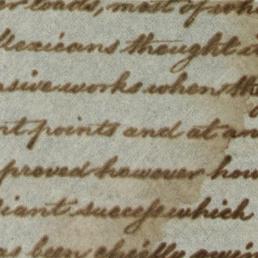 er loads, most of wh
Mexicans thought it
nsive works when the
nt points and at an
proved however how
liant success which
as been chiefly owin